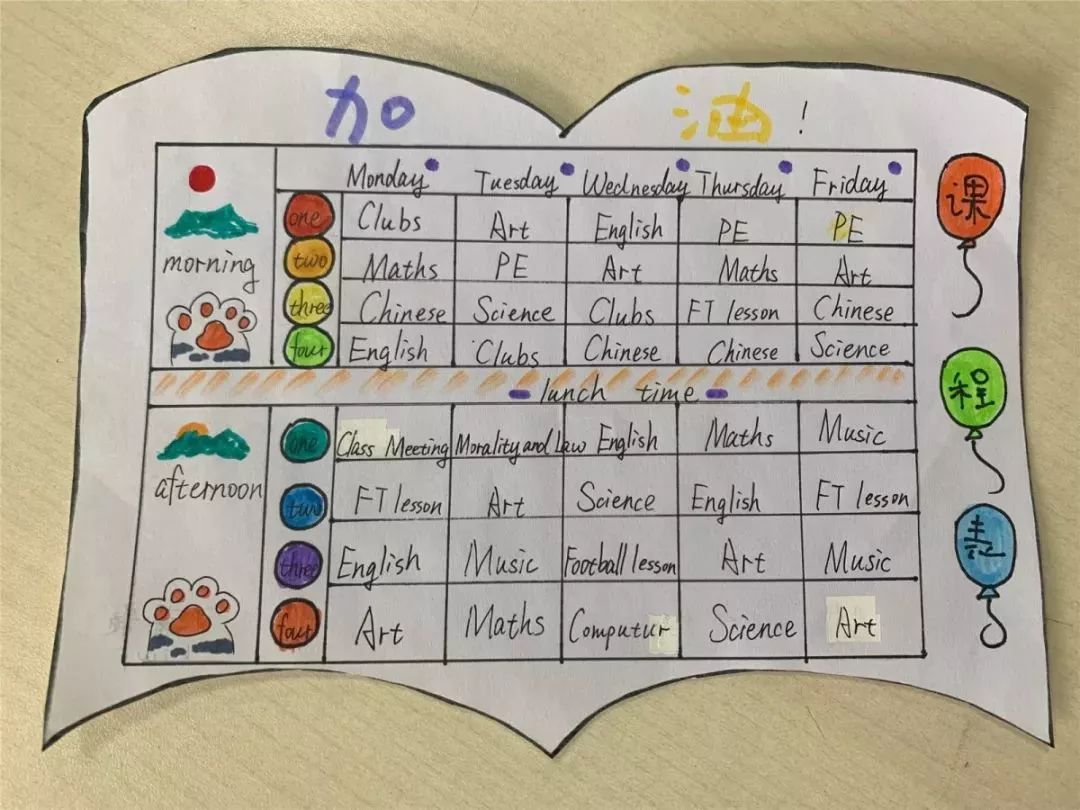 加油!
Monday Tuesday Wednesday Thursday Friday
one Clubs Art English PE PE
two Maths PE Art Maths Art
morning
three Chinese Science Clubs FT lesson Chinese
four English Clubs Chinese Chinese Science
lunch time
one Class Meeting Morality and Law English Maths Music
afternoon
two FT lesson Art Science English FT lesson
three English Music Football lesson Art Music
four Art Maths Computur Science Art
课
程
表